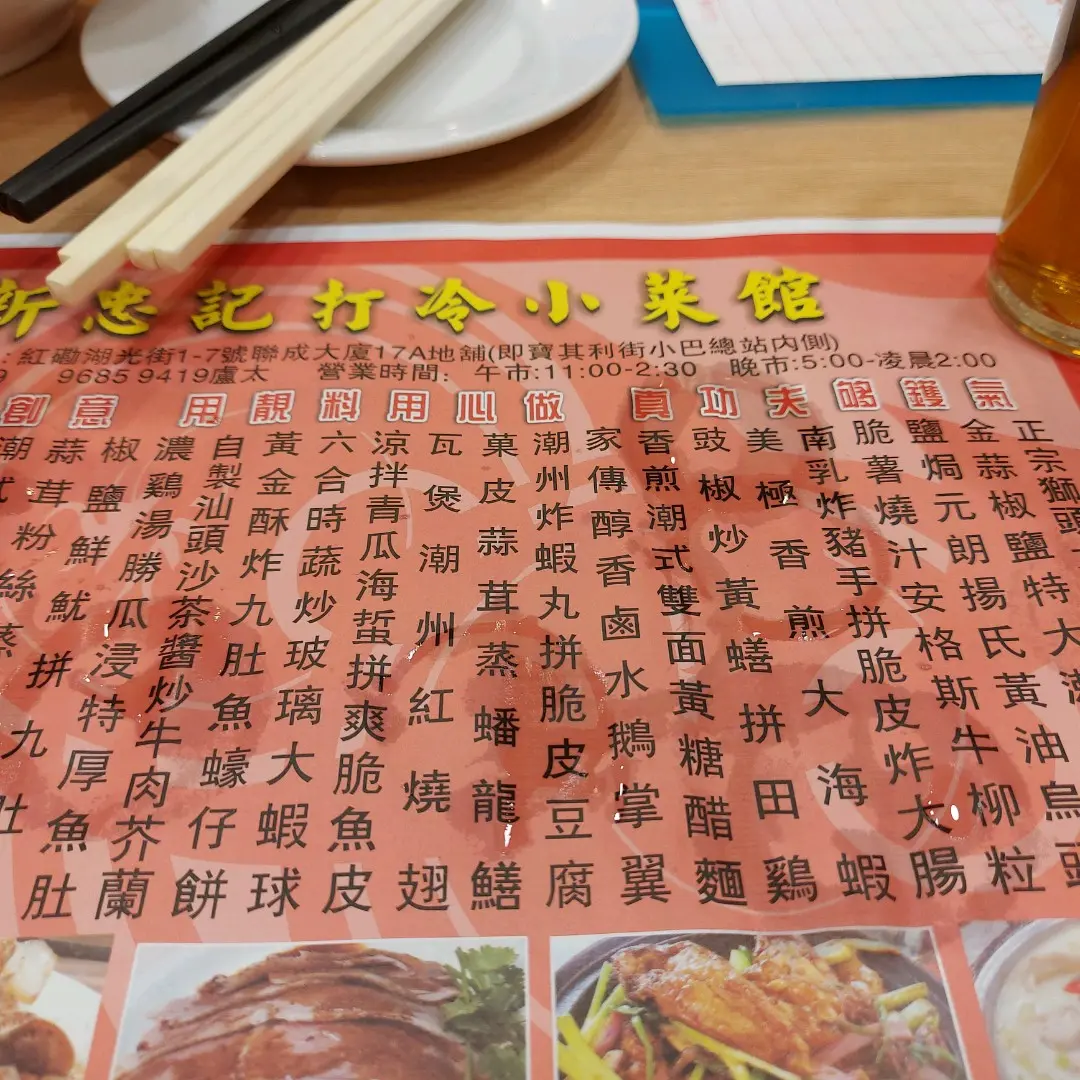 新忠記打冷小菜館
:紅磡湖光街1-7號聯成大廈17A地舖(即寶其利街小巴總站內側)
9 9685 9419盧太 營業時間: 午市:11:00-2:30 晚市:5:00-凌晨2:00
創意 用靚料用心做 真功夫夠鑊氣
正宗獅頭
金蒜椒鹽特大
鹽焗元朗揚氏黃油烏頭
脆薯燒汁安格斯牛柳粒
南乳炸豬手拼脆皮炸大腸
美極香煎大海蝦
豉椒炒黃蟮拼田雞
香煎潮式雙面黃糖醋麵
家傳醇香鹵水鵝掌翼
潮州炸蝦丸拼脆皮豆腐
菓皮蒜茸蒸蟠龍鱔
瓦煲潮州紅燒翅
涼拌青瓜海蜇拼爽脆魚皮
六合時蔬炒玻璃大蝦球
黃金酥炸九肚魚蠔仔餅
自製汕頭沙茶醬炒牛肉芥蘭
濃雞湯勝瓜浸特厚魚肚
椒鹽鮮魷拼九肚
蒜茸粉絲蒸
潮式